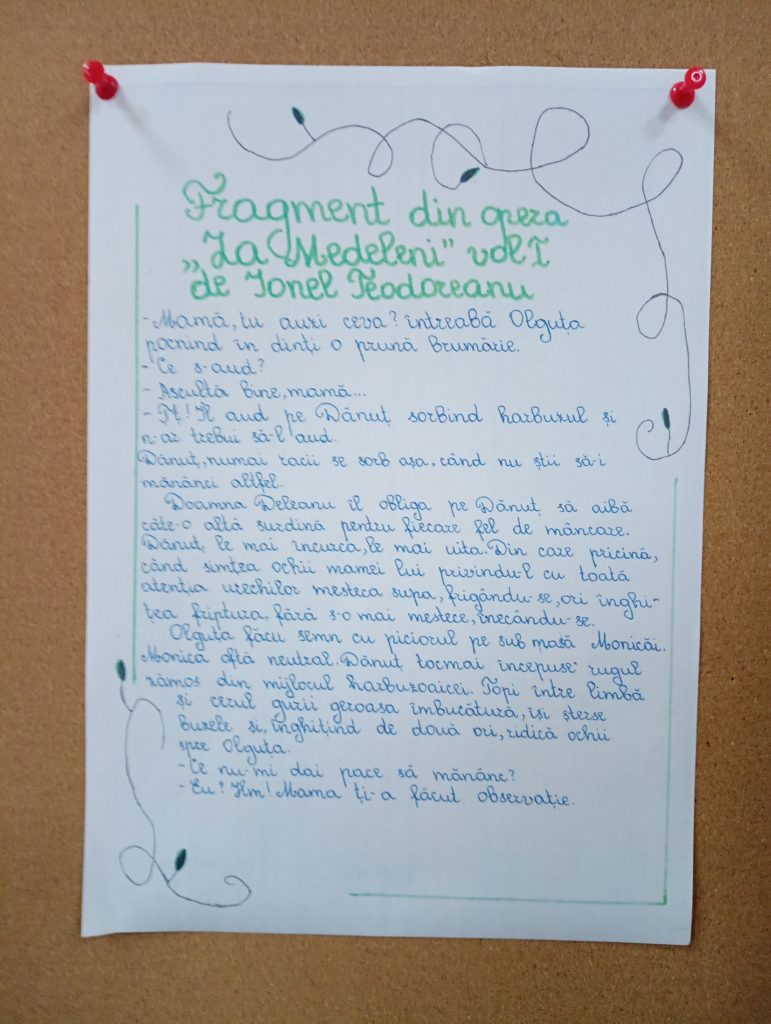 Fragment din opera
„La Medeleni" vol I
de Ionel Teodoreanu
- Mamă, tu auzi ceva? întreabă Olguța
pocnind în dinți o prună brumărie.
- Ce s-aud?
- Ascultă bine, mamă...
- Pt! Îl aud pe Dănuț sorbind harbuzul și
n-ar trebui să-l aud.
Dănuț, numai racii se sorb așa, când nu știi să-i
mănânci altfel.
Doamna Deleanu îl obliga pe Dănuț să aibă
câte-o altă surdină pentru fiecare fel de mâncare.
Dănuț le mai încurca, le mai uita. Din care pricină,
când simțea ochii mamei lui privindu-l cu toată
atenția urechilor mesteca supa, frigându-se, ori înghi-
țea friptura, fără s-o mai mestece, înecându-se.
Olguța făcu semn cu piciorul pe sub masă Monicăi.
Monica oftă neutral. Dănuț tocmai începuse rugul
zămos din mijlocul harbuzoaicei. Topi între limbă
și cerul gurii geroasa îmbucătură, își șterse
buzele și, înghițind de două ori, ridică ochii
spre Olguța.
- Ce nu-mi dai pace să mănânc?
- Eu? Hm! Mama ți-a făcut observație.